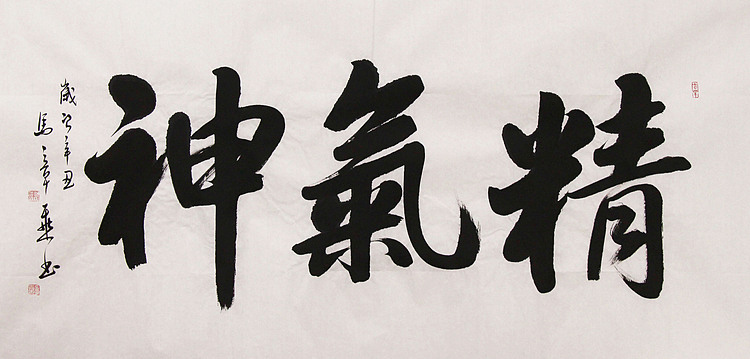 精氣神
歲次辛丑
馬章乘书